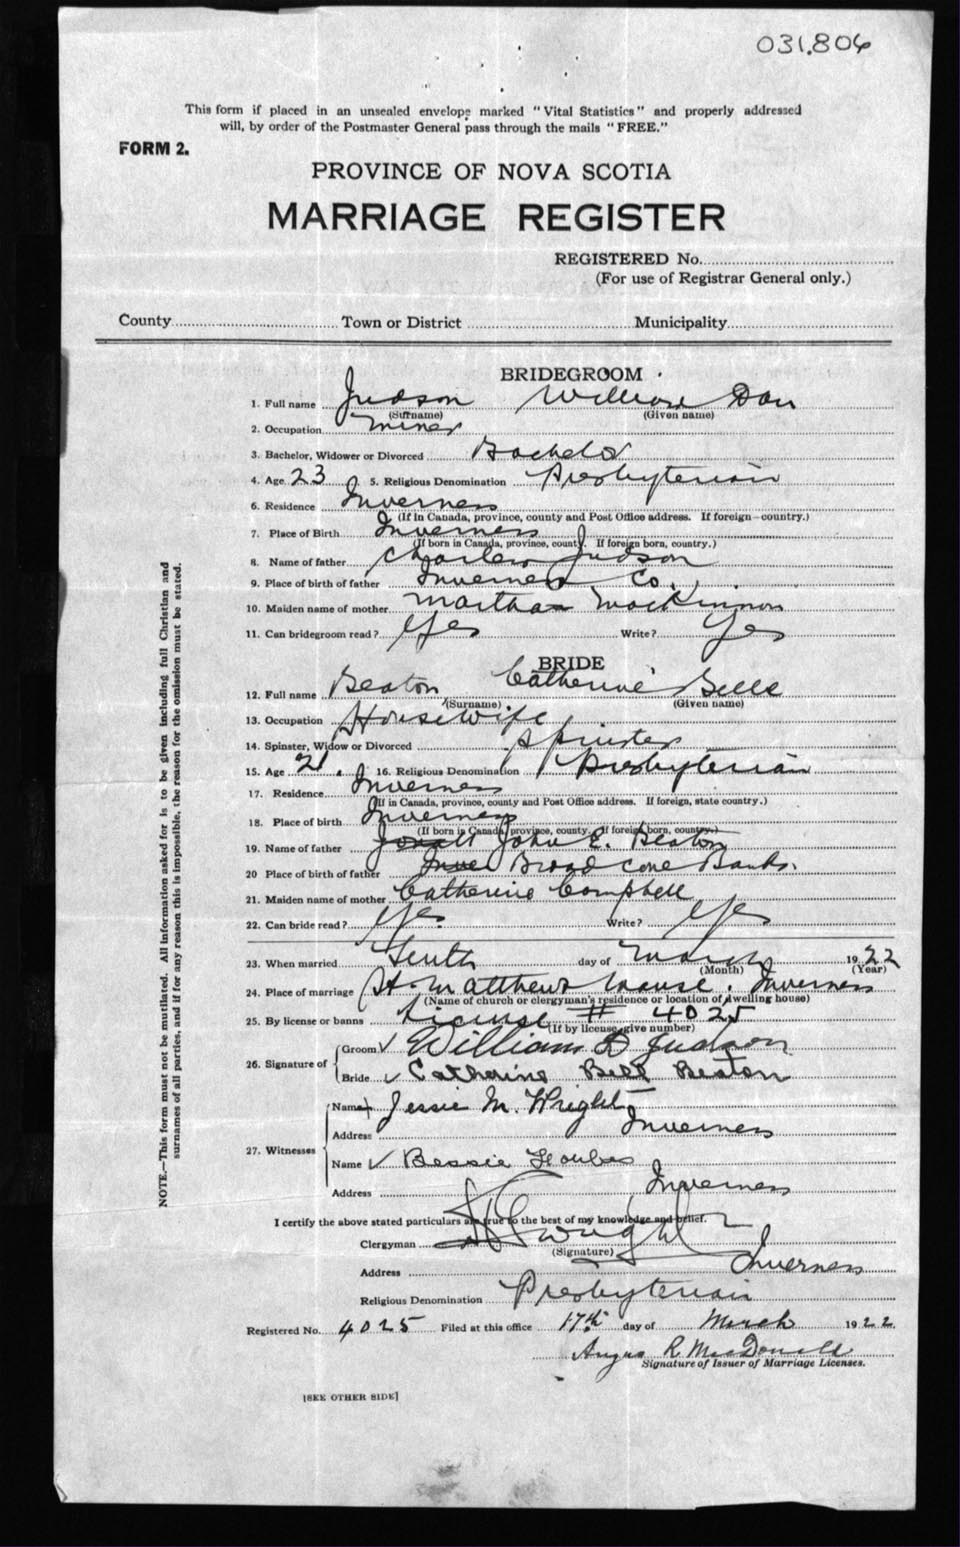 031806
This form if placed in an unsealed envelope marked "Vital Statistics" and properly addressed
will, by order of the Postmaster General pass through the mails "FREE."
FORM 2.
PROVINCE OF NOVA SCOTIA
MARRIAGE REGISTER
REGISTERED No.
(For use of Registrar General only.)
County Town or District Municipality
BRIDEGROOM
1. Full name Judson William Dan
(Surname) (Given name)
2. Occupation Miner
3. Bachelor, Widower or Divorced Bachelor
4. Age 23 5. Religious Denomination Presbyterian
6. Residence Inverness
(If in Canada, province, county and Post Office address. If foreign—country.)
7. Place of Birth Inverness
(If born in Canada, province, county. If foreign born, country.)
8. Name of father Charles Judson
9. Place of birth of father Inverness Co.
10. Maiden name of mother Martha MacKinnon
11. Can bridegroom read? Yes Write? Yes
BRIDE
12. Full name Beaton Catherine Bell
(Surname) (Given name)
13. Occupation Housewife
14. Spinster, Widow or Divorced Spinster
15. Age 21. 16. Religious Denomination Presbyterian
17. Residence Inverness
(If in Canada, province, county and Post Office address. If foreign, state country.)
18. Place of birth Inverness
(If born in Canada, province, county. If foreign born, country.)
19. Name of father John E. Beaton
20 Place of birth of father Broad Cove Banks.
21. Maiden name of mother Catherine Campbell
22. Can bride read? Yes Write? Yes
23. When married Tenth day of March 1922
(Month) (Year)
24. Place of marriage St. Matthews Manse. Inverness
(Name of church or clergyman's residence or location of dwelling house)
25. By license or banns License # 4025
(If by license, give number)
26. Signature of Groom William D Judson
Bride Catherine Bell Beaton
27. Witnesses Name Jessie M. Wright
Address Inverness
Name Bessie Forbes
Address Inverness
I certify the above stated particulars are true to the best of my knowledge and belief.
Clergyman Wright
(Signature)
Address Inverness
Religious Denomination Presbyterian
Registered No. 4025 Filed at this office 17th day of March 1922
Angus R. MacDonald
Signature of Issuer of Marriage Licenses.
[SEE OTHER SIDE]
NOTE.—This form must not be mutilated. All information asked for is to be given including full Christian and
surnames of all parties, and if for any reason this is impossible, the reason for the omission must be stated.